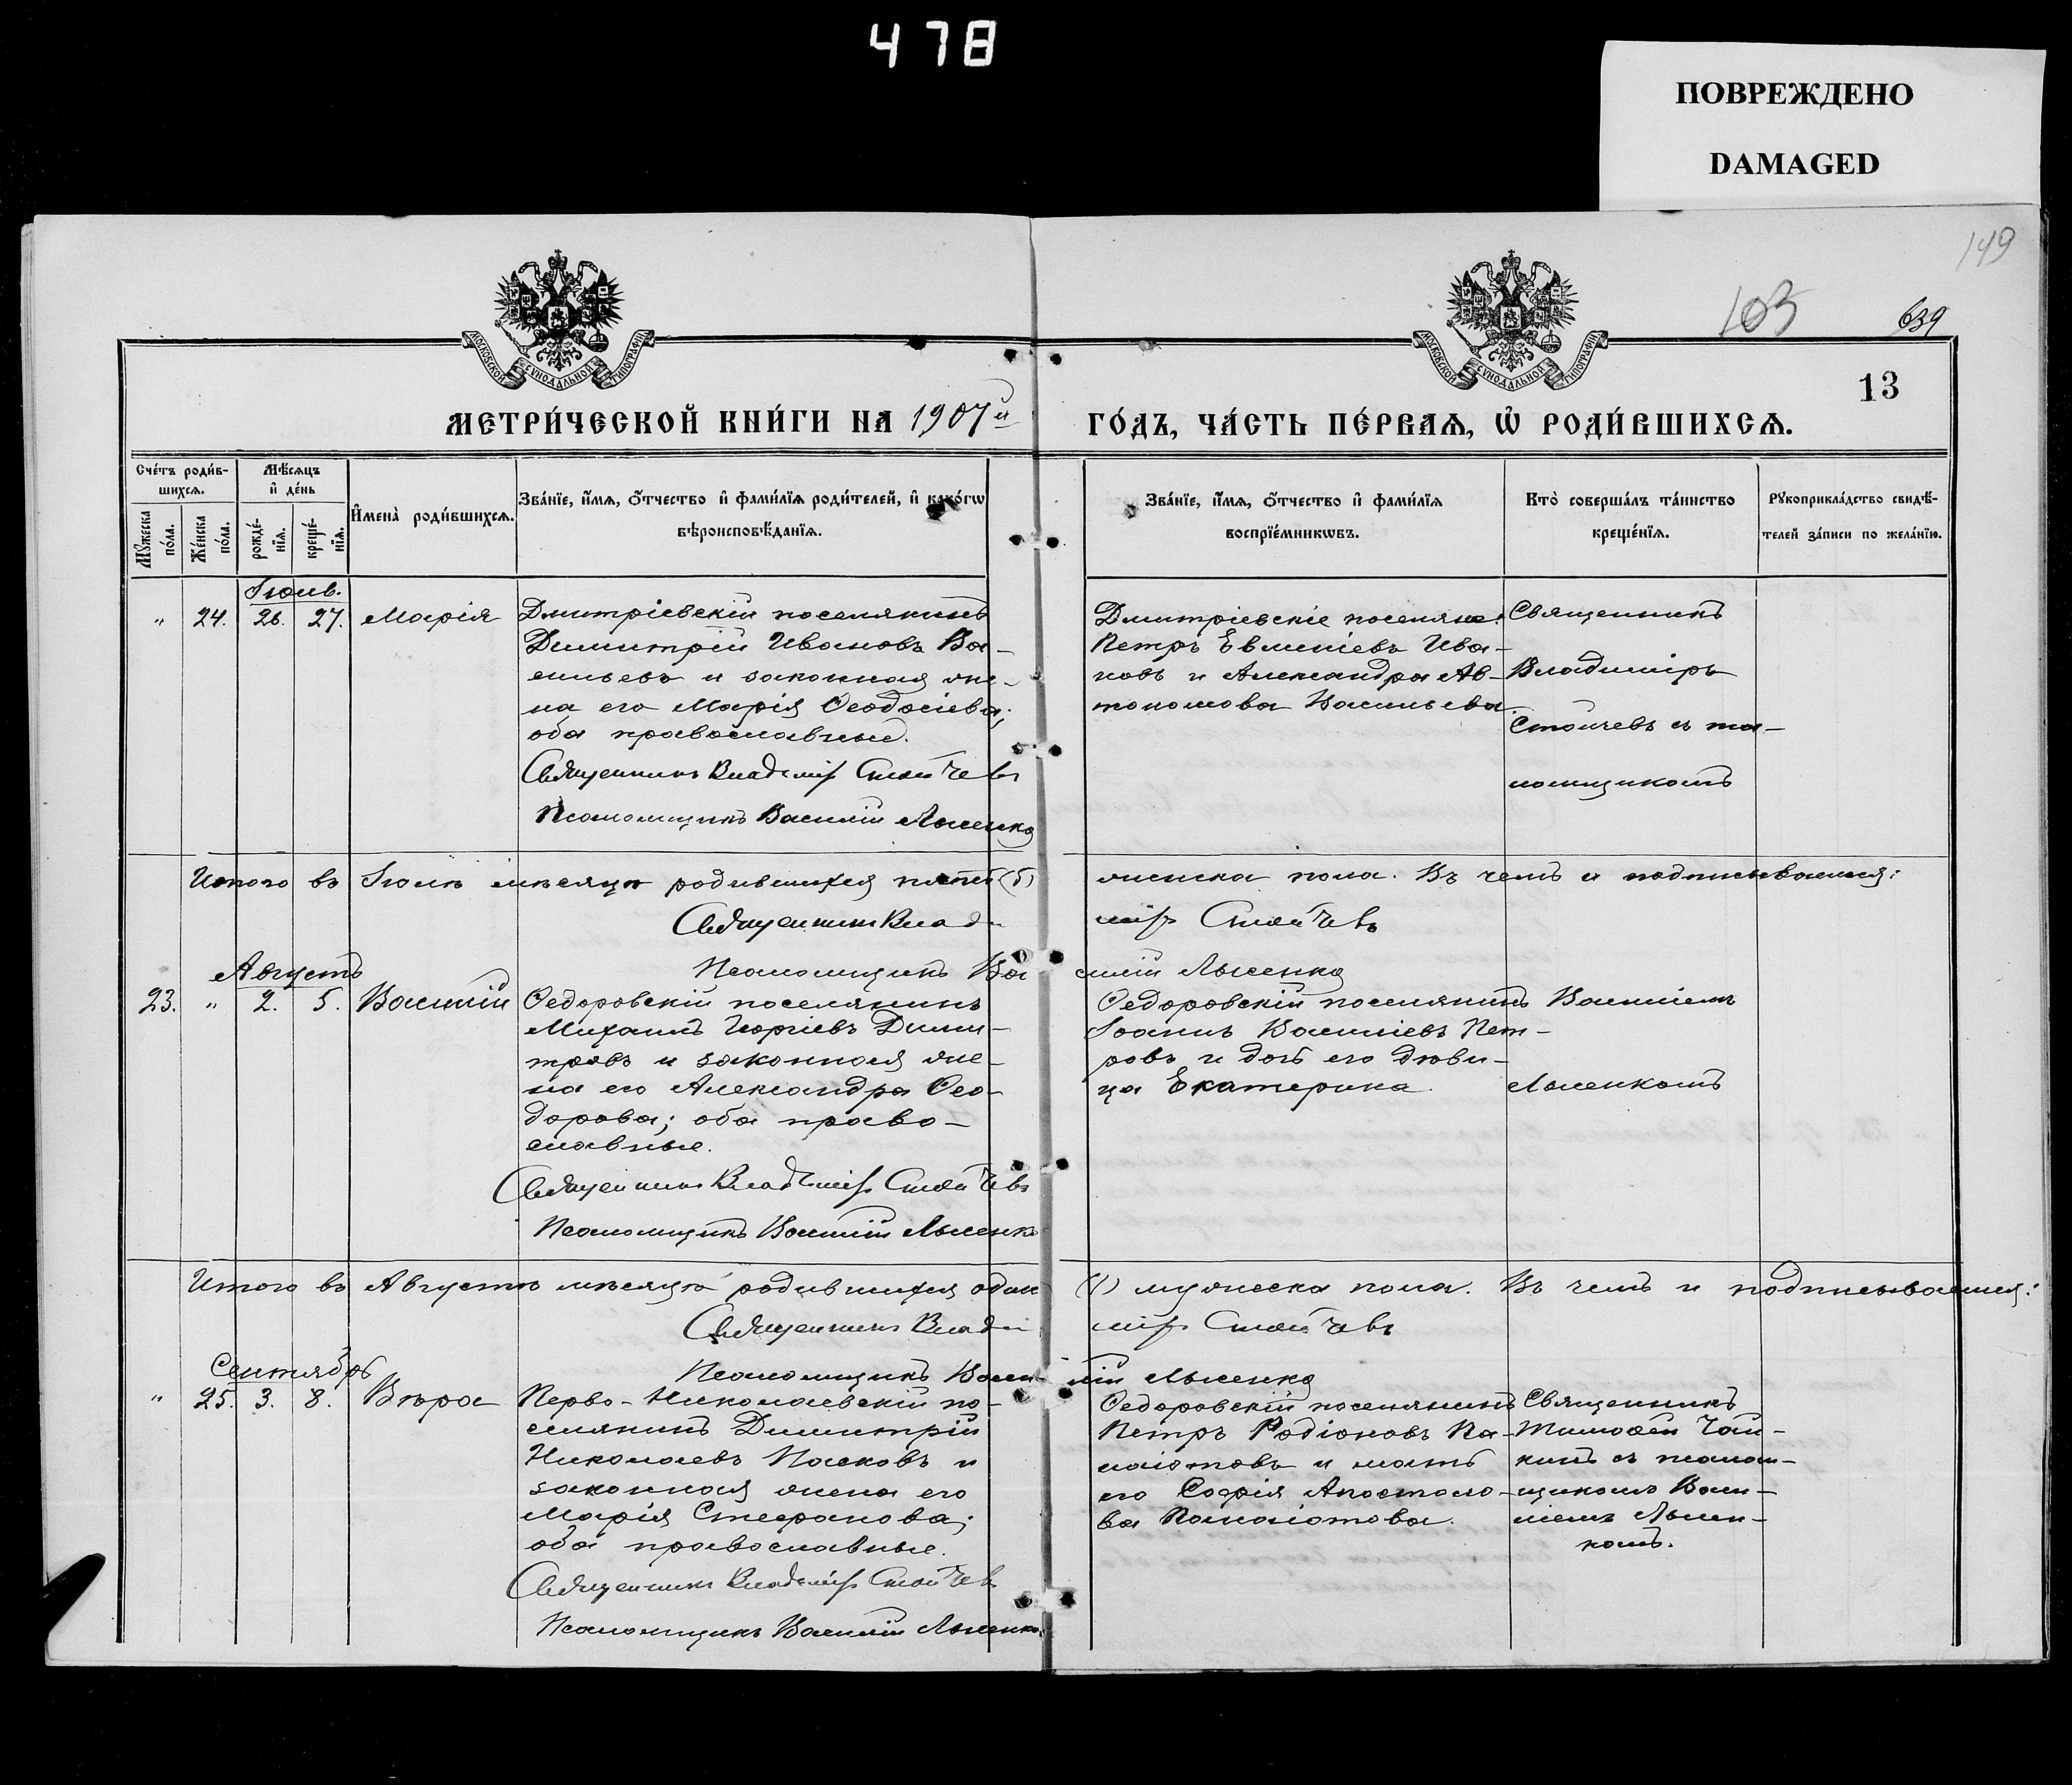 478
ПОВРЕЖДЕНО
DAMAGED
149
103
639
13
МОСКОВСКОЙ СѴНОДАЛЬНОЙ ТИПОГРАФІИ
МОСКОВСКОЙ СѴНОДАЛЬНОЙ ТИПОГРАФІИ
МЕТРИ́ЧЕСКОЙ КНИ́ГИ НА 1907й ГО́ДЪ, ЧА́СТЬ ПЕ́РВАѦ, Ѡ РОДИ́ВШИХСѦ.
Сче́тъ роди́в-
шихсѧ.
Мꙋ́жеска
по́ла.
Же́нска
по́ла.
Мѣ́сѧцъ
и҆ де́нь
рожде́-
нїѧ.
креще́-
нїѧ.
И҆мена̀ роди́вшихсѧ.
Зва́нїе, и҆́мѧ, ѻ҆́тчество и҆ фами́лїѧ роди́телей, и҆ како́гѡ
вѣроисповѣ́данїѧ.
Зва́нїе, и҆́мѧ, ѻ҆́тчество и҆ фами́лїѧ
воспрїе́мникѡвъ.
Кто̀ соверша́лъ та́инство
креще́нїѧ.
Рꙋкоприкла́дство свидѣ́-
телей за́писи по жела́нїю.
Іюль.
" 24. 26. 27. Марія
Дмитріевскій поселянинъ
Димитрій Ивановъ Ва-
сильевъ и законная же-
на его Марія Ѳеодосіева;
оба православные.
Священникъ Владиміръ Стойчевъ
Псаломщикъ Василій Лысенко
Дмитріевскіе поселяне:
Петръ Евменіевъ Ива-
новъ и Александра Ав-
тономова Васильева.
Священникъ
Владиміръ
Стойчевъ съ пса-
ломщикомъ
Итого въ Іюлѣ мѣсяцѣ родившихся пять (5) женска пола. Въ чемъ и подписываемся:
Священникъ Владиміръ Стойчевъ
Псаломщикъ Василій Лысенко
Августъ
23. " 2. 5. Василій
Ѳедоровскій поселянинъ
Михаилъ Георгіевъ Дими-
тровъ и законная же-
на его Александра Ѳео-
дорова; оба право-
славные.
Священникъ Владиміръ Стойчевъ
Псаломщикъ Василій Лысенко
Ѳедоровскій поселянинъ
Іоаннъ Василіевъ Пет-
ровъ и дочь его дѣви-
ца Екатерина.
Василіемъ
Лысенкомъ
Итого въ Августѣ мѣсяцѣ родившихся одинъ (1) мужеска пола. Въ чемъ и подписываемся:
Священникъ Владиміръ Стойчевъ
Псаломщикъ Василій Лысенко
Сентябрь
" 25. 3. 8. Вѣра
Перво-Николаевскій по-
селянинъ Димитрій
Николаевъ Пасковъ и
законная жена его
Марія Стефанова;
оба православные.
Священникъ Владиміръ Стойчевъ
Псаломщикъ Василій Лысенко
Ѳедоровскій поселянинъ
Петръ Родіоновъ Па-
наіотовъ и мать
его Софія Апостоло-
ва Панаіотова.
Священникъ
Тимоѳей Чай-
кинъ съ псалом-
щикомъ Васи-
ліемъ Лысен-
комъ.